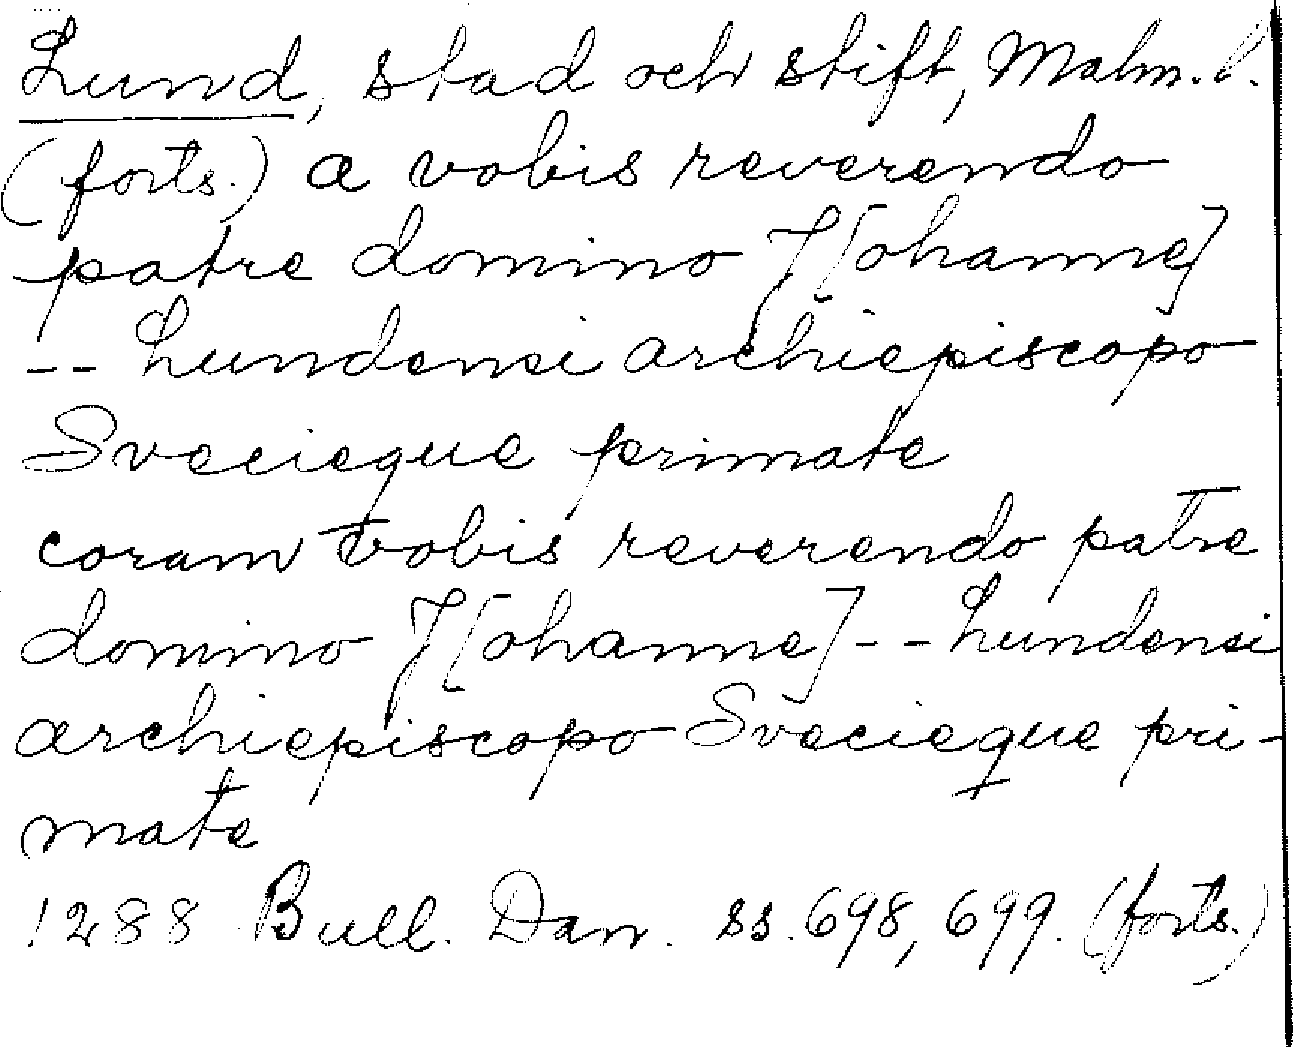 Lund, stad och stift, Malm. l.
(forts.) a vobis reverendo
patre domino J[ohanne]
-- Lundensi archiepiscopo
Svecieque primate
coram vobis reverendo patre
domino J[ohanne] -- Lundensi
archiepiscopo Svecieque pri-
mate
1288 Bull. Dan. ss. 698, 699. (forts.)